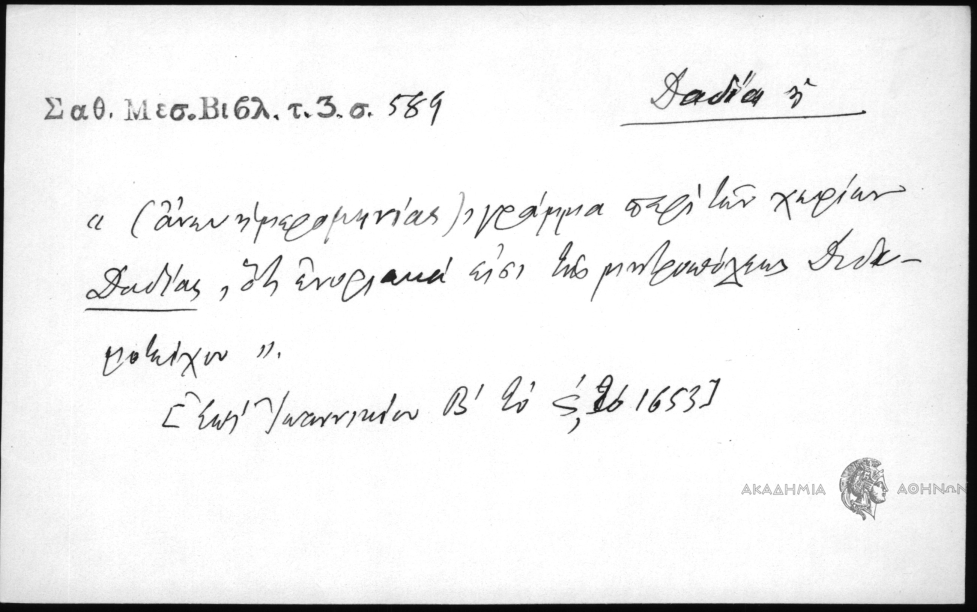 Σαθ. Μεσ. Βιβλ. τ. 3. σ. 589
Δαδία ἡ
« (ἄνευ ἡμερομηνίας), γράμμα περὶ τῶν χωρίων
Δαδίας, ὅτι ἐνοριακά εἰσι τῆς μητροπόλεως Διδυ-
μοτείχου ».
[Ἐπὶ Ἰωαννικίου Β' τὸ ς, 1653]
ΑΚΑΔΗΜΙΑ ΑΘΗΝΩΝ